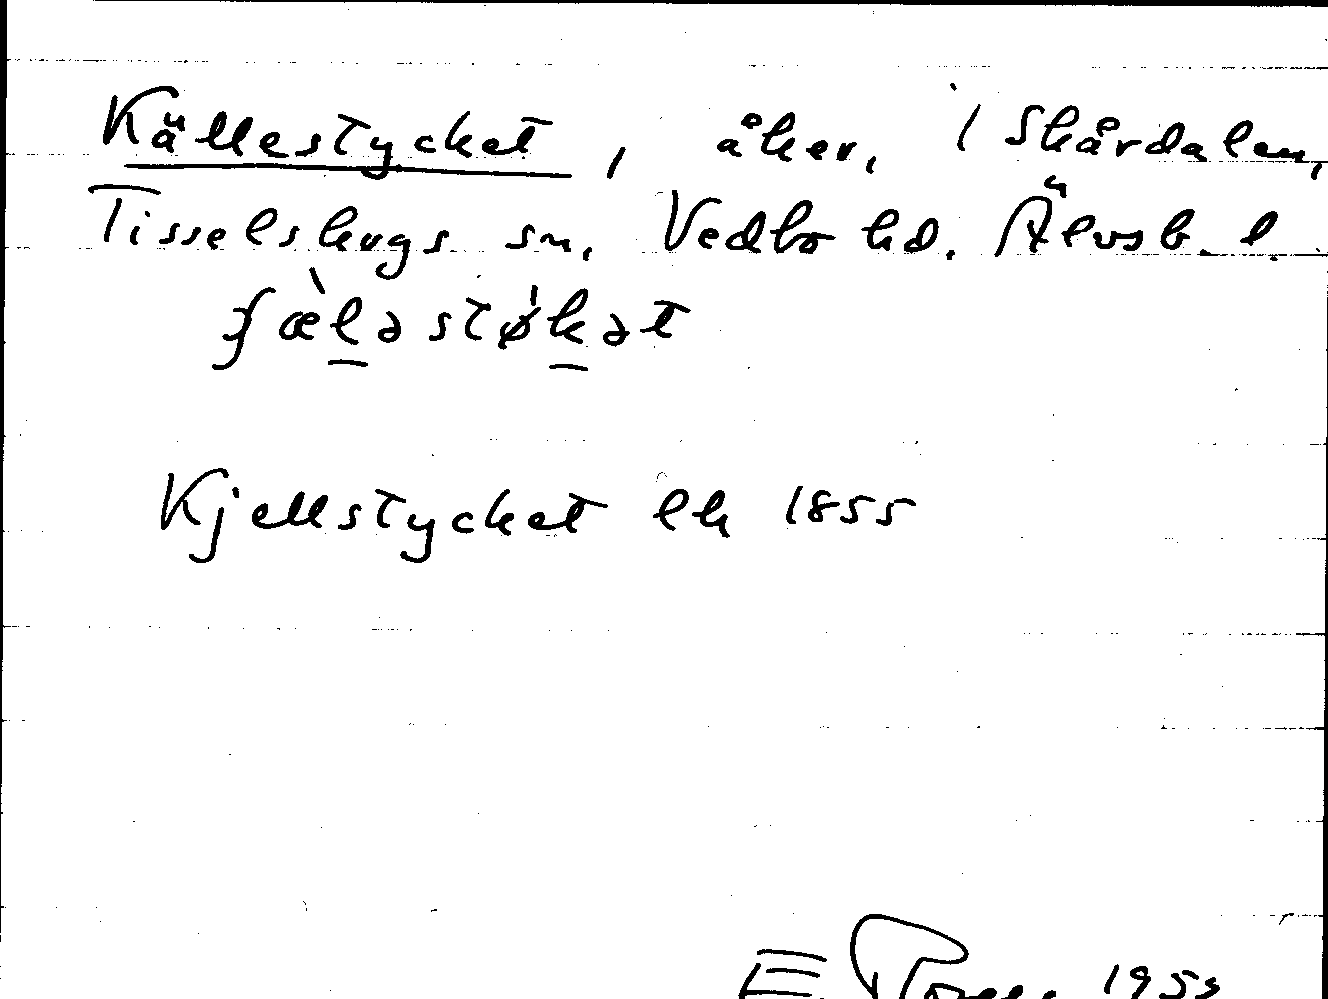 Källestycket, åker, i Skårdalen,
Tisselskogs sn. Vedbo hd. Älvsb. l.
ʃæ̀l̲əstø̍k̲ət
Kjellstycket lk 1855
E.